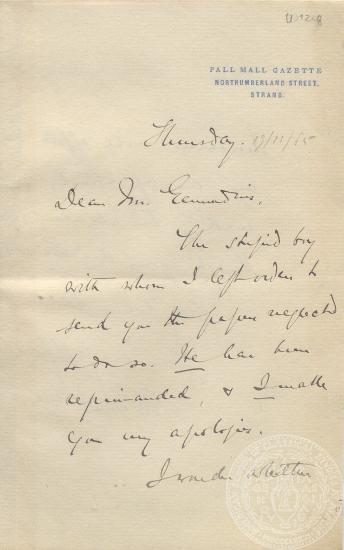 PALL MALL GAZETTE
NORTHUMBERLAND STREET,
STRAND.
Thursday. 19/11/
Dear Mr. Gennadius,
The stupid boy
with whom I left orders to
send you the papers neglected
to do so. He has been
reprimanded, & I make
you my apologies.
I wonder whether